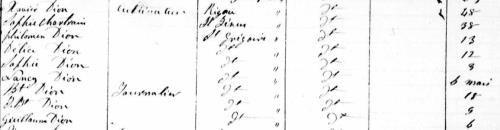 Xavier Dion Cultivateur Rigau " do 48
Sophie Chartrain St Pierre " do 38
Philomen Dion St Grégoire " do 13
Delice Dion do " do 12
Sophie Dion do " do 8
Nancy Dion do " do 6 mois
Bte Dion Journalier do " do 18
J. Bte Dion do " do 9
Guillaume Dion do " do 6